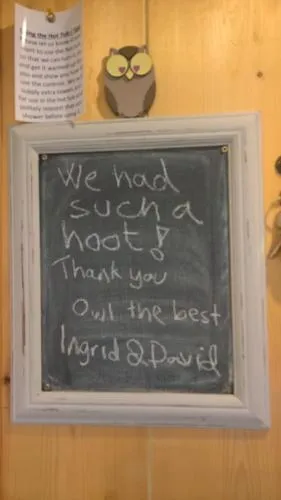 Using the Hot Tub
want to use the hot
so that we can turn it
and get it warmed up
you and show you how
use the controls. We
supply extra towels
for use in the hot tub
politely request that
shower before using
We had
such a
hoot!
Thank you
Owl the best
Ingrid & David